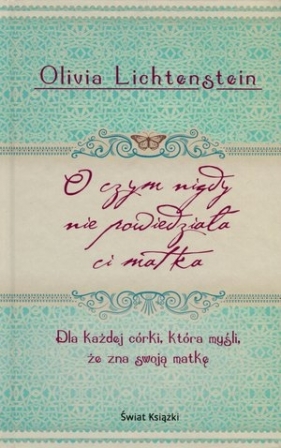 Olivia Lichtenstein
O czym nigdy
nie powiedziała
ci matka
Dla każdej córki, która myśli,
że zna swoją matkę
Świat Książki